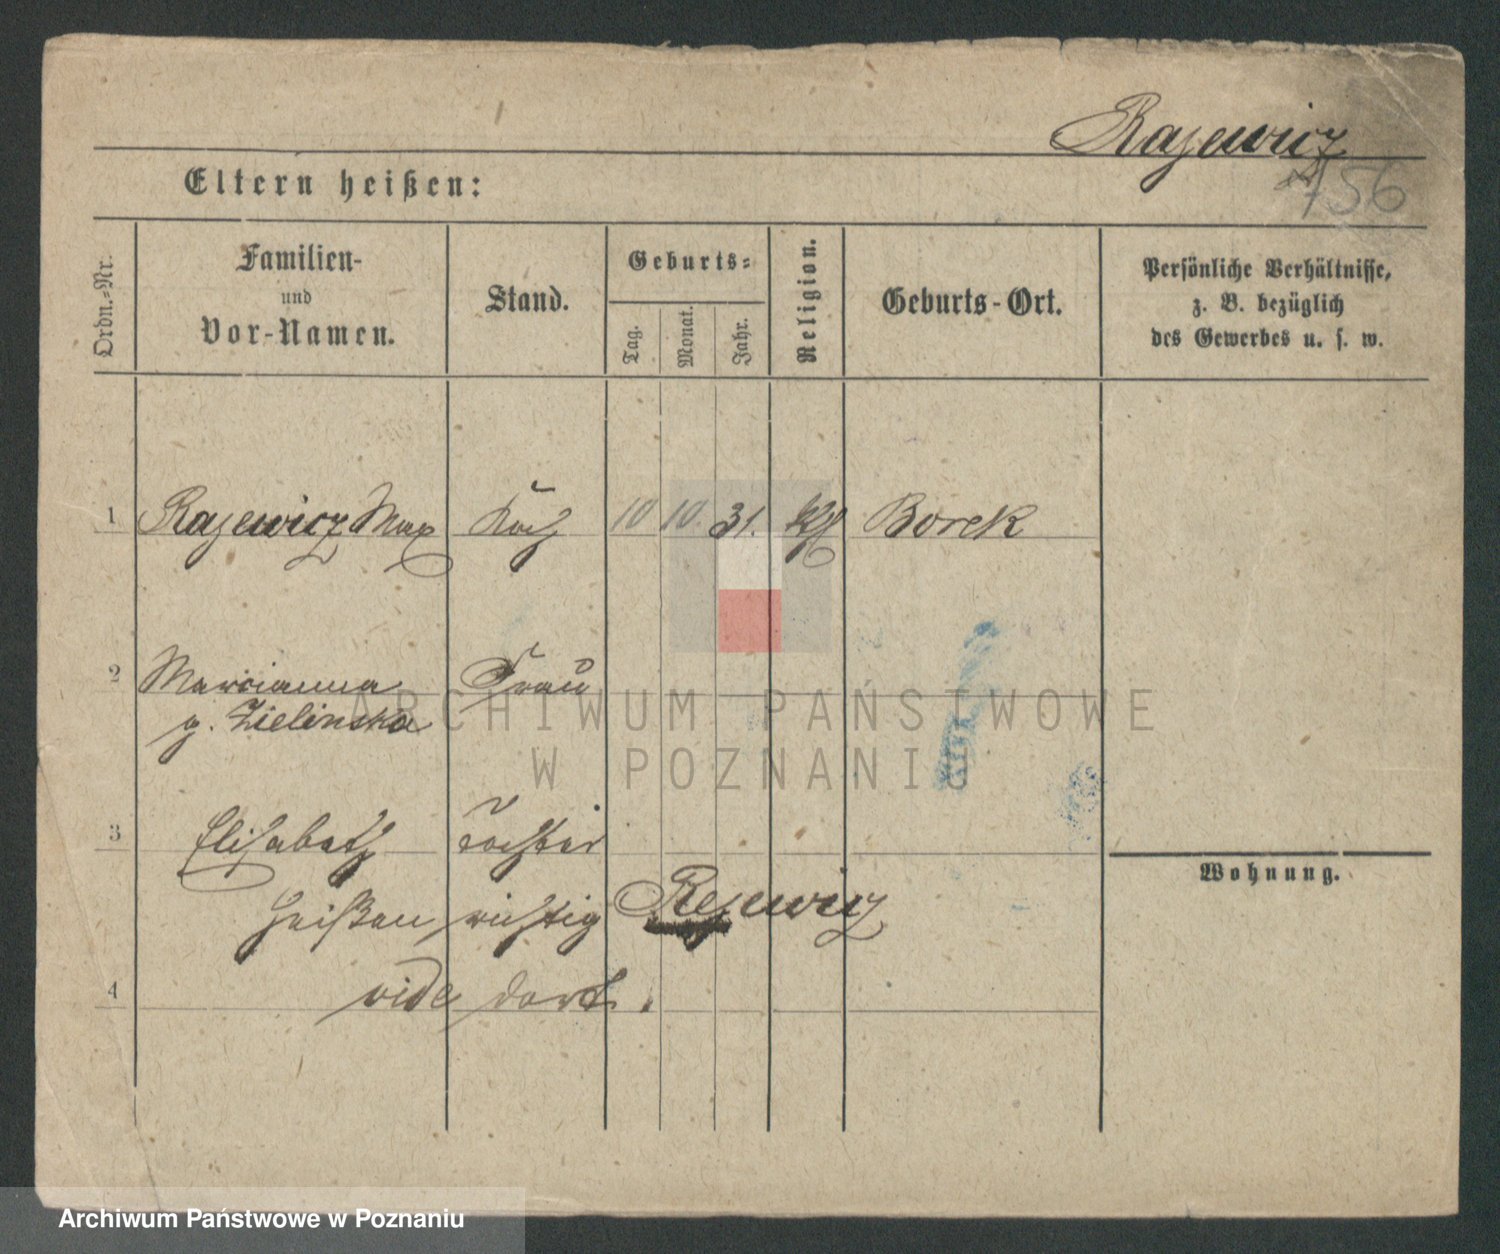 Rajewicz
756
Eltern heißen:
Ordn.-Nr.
Familien-
und
Vor-Namen.
Stand.
Geburts-
Tag.
Monat.
Jahr.
Religion.
Geburts-Ort.
Persönliche Verhältnisse,
z. B. bezüglich
des Gewerbes u. s. w.
1 Rajewicz Max Koch 10 10. 31. kth Borek
2 Marcianna Frau
g. Zielinska
ARCHIWUM PAŃSTWOWE
W POZNANIU
3 Elisabeth Tochter
Wohnung.
heißen richtig Rejewicz
4 vide dort.
Archiwum Państwowe w Poznaniu